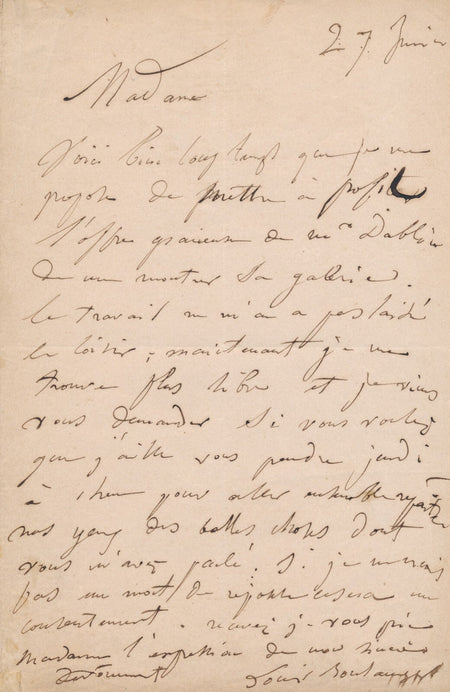 27 Janvier
Madame
Voici bien longtemps que je me
propose de mettre à profit
l'offre gracieuse de Mr
de me montrer sa galerie.
le travail ne m'en a pas laissé
le loisir, maintenant je me
trouve plus libre et je viens
vous demander si vous voulez
que j'aille vous prendre jeudi
à heure pour aller ensemble
nos yeux des belles choses dont
vous m'avez parlé. Si je ne reçois
pas un mot de réponse ce sera un
consentement. recevez je vous prie
Madame l'expression de mon sincère
dévouement Louis Boulanger